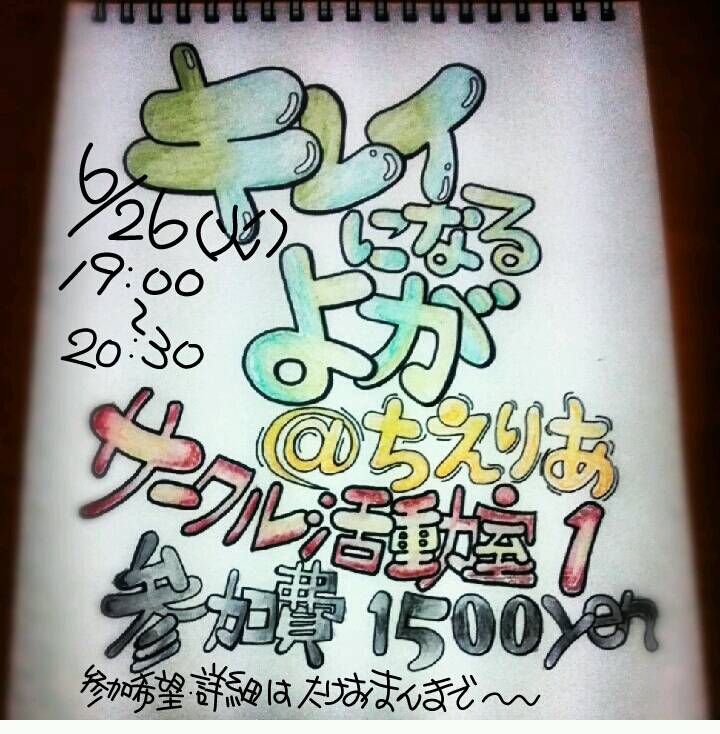 キレイ
になる
よが
6/26(火)
19:00
〜
20:30
@ちえりあ
サークル活動室1
参加費 1500yen
参加希望・詳細は たけおまんまで〜〜